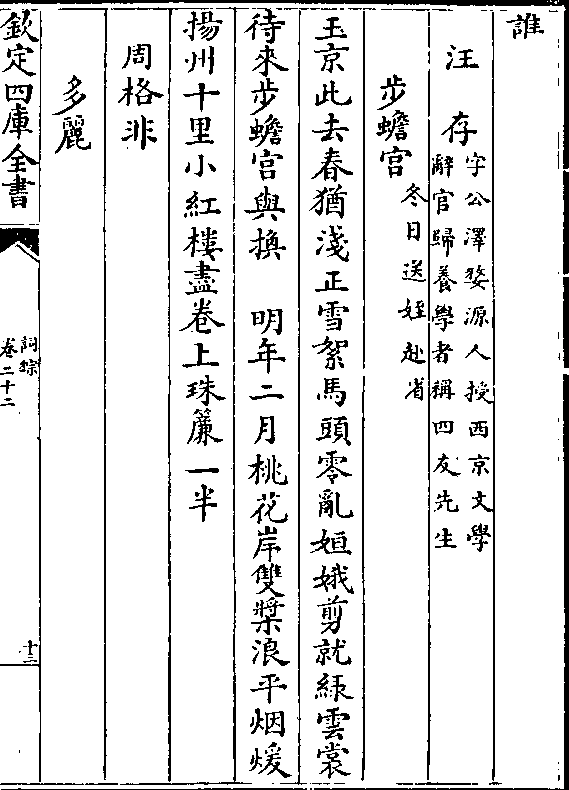 誰
汪存字公澤婺源人授西京文學
辭官歸養學者稱四友先生
步蟾宫冬日送姪赴省
玉京此去春猶淺正雪絮馬頭零亂姮娥剪就緑雲裳
待來步蟾宫與換　明年二月桃花岸雙槳浪平烟煖
揚州十里小紅樓盡卷上珠簾一半
周格非
多麗
欽定四庫全書
詞綜
卷二十二
十三